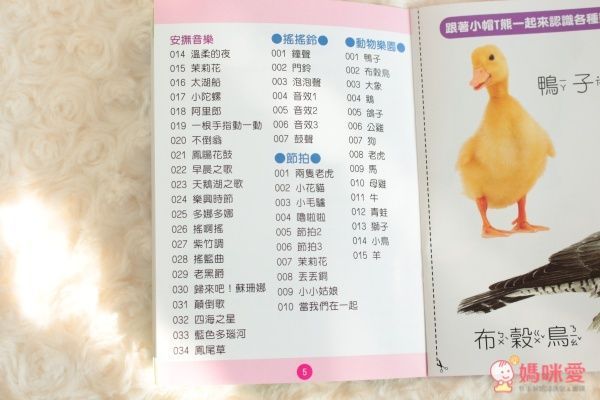 安撫音樂
014 溫柔的夜
015 茉莉花
016 太湖船
017 小陀螺
018 阿里郎
019 一根手指動一動
020 不倒翁
021 鳳陽花鼓
022 早晨之歌
023 天鵝湖之歌
024 樂興時節
025 多娜多娜
026 搖啊搖
027 紫竹調
028 搖籃曲
029 老黑爵
030 歸來吧！蘇珊娜
031 顛倒歌
032 四海之星
033 藍色多瑙河
034 鳳尾草
●搖搖鈴●
001 鐘聲
002 門鈴
003 泡泡聲
004 音效1
005 音效2
006 音效3
007 鼓聲
●節拍●
001 兩隻老虎
002 小花貓
003 小毛驢
004 嚕啦啦
005 節拍2
006 節拍3
007 茉莉花
008 丟丟銅
009 小小姑娘
010 當我們在一起
●動物樂園●
001 鴨子
002 布穀鳥
003 大象
004 鵝
005 鴿子
006 公雞
007 狗
008 老虎
009 馬
010 母雞
011 牛
012 青蛙
013 獅子
014 小鳥
015 羊
5
跟著小帽T熊一起來認識各種
鴨ㄧㄚ子
布ㄅㄨˋ穀ㄍㄨˇ鳥ㄋㄧㄠˇ
媽咪愛